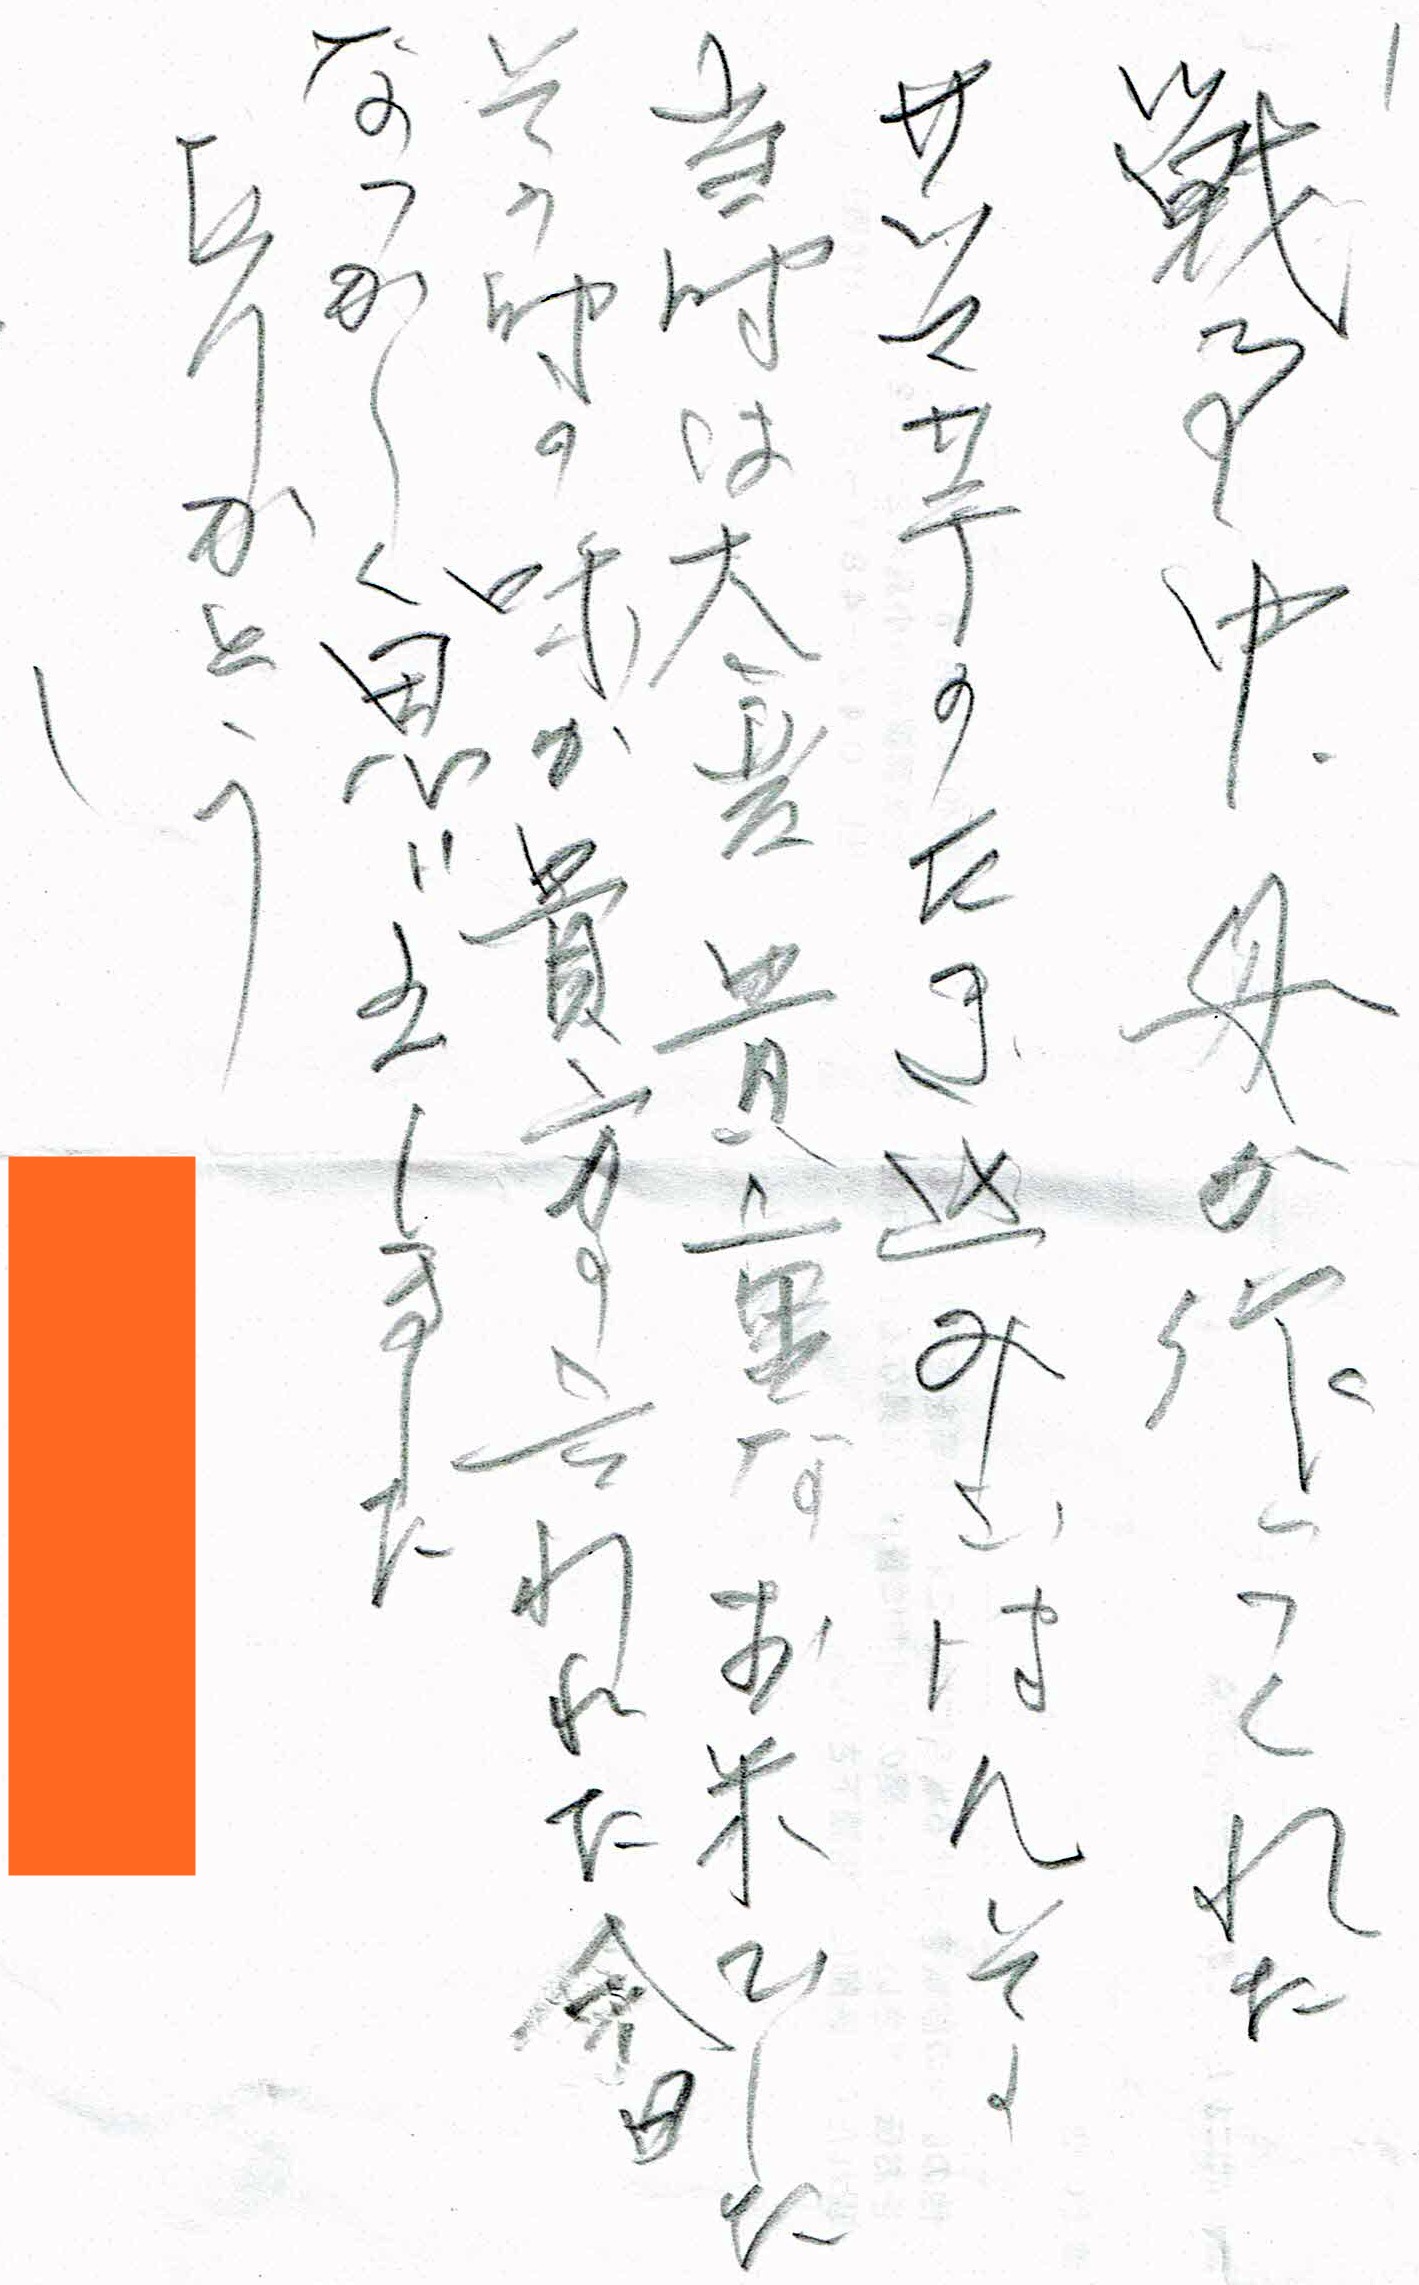 戦争中、母が作ってくれた
サツマ芋のたき込みごはん
当時は大変貴重なお米でした
その時の味が貴方の言われた今日
なつかしく思い出しました
ありがとう